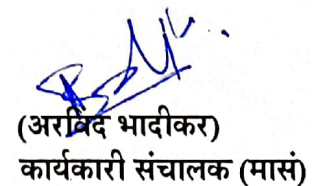 (अरविंद भादीकर)
कार्यकारी संचालक (मासं)